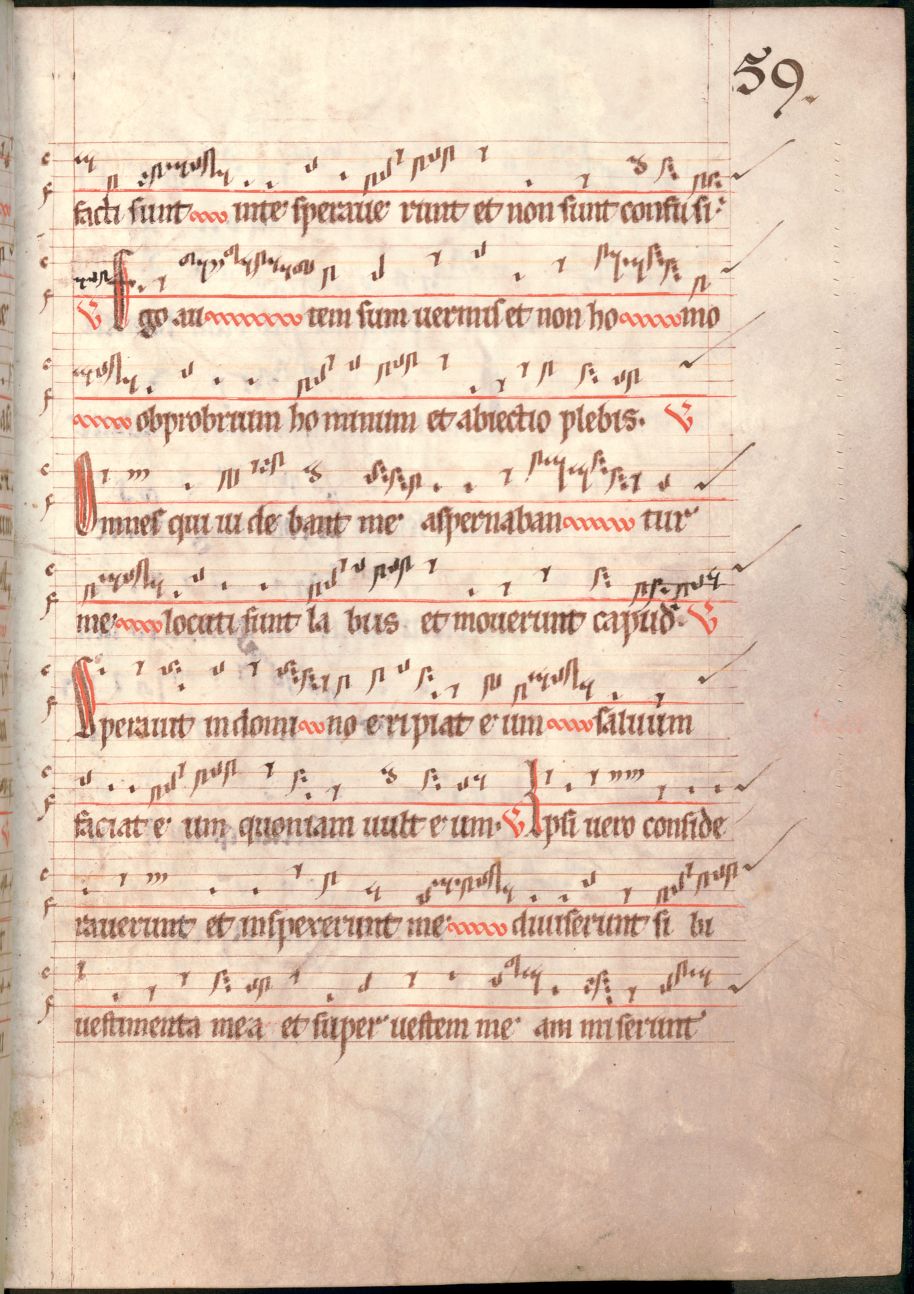 59.
facti sunt in te speraue runt et non sunt confusi.
V Ego au tem sum uermis et non ho mo
obprobrium ho minum et abiectio plebis. V
Omnes qui ui de bant me aspernaban tur
me locuti sunt la biis et mouerunt capud. V
Sperauit in domi no eripiat e um saluum
faciat e um quoniam uult e um. V Ipsi uero conside
rauerunt et inspexerunt me diuiserunt si bi
uestimenta mea et super uestem me am miserunt